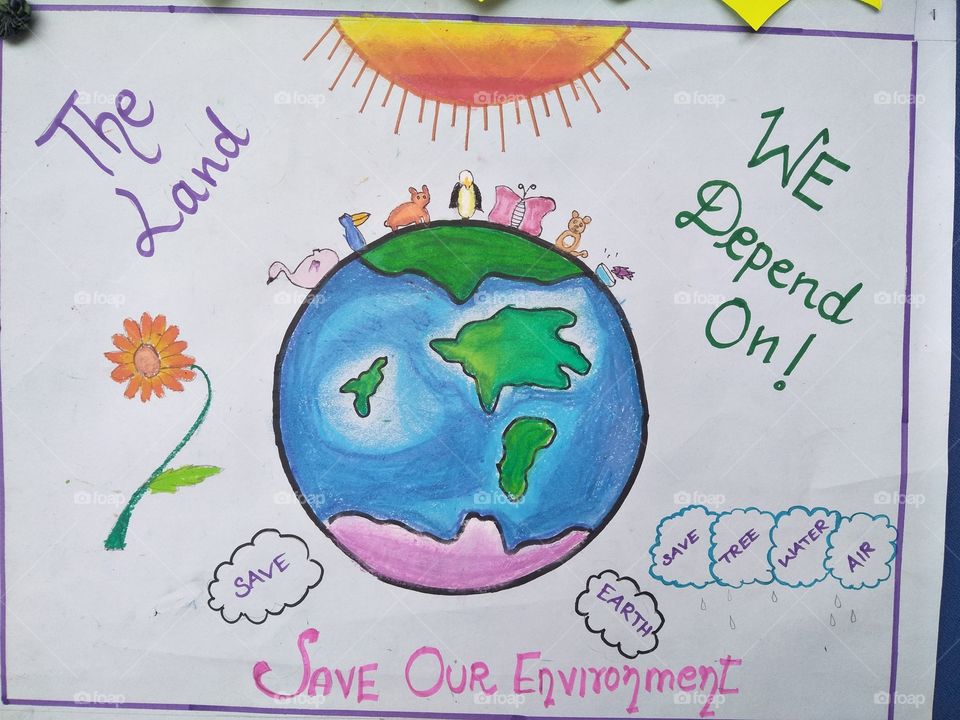 The
Land
WE
Depend
On!
SAVE
EARTH
SAVE TREE WATER AIR
SAVE OUR Environment
foap